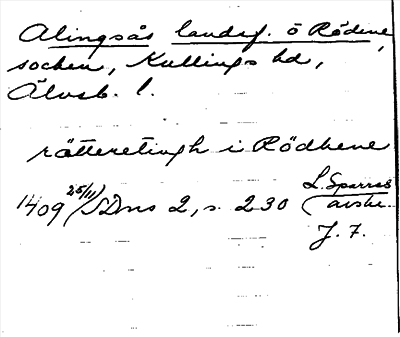 Alingsås landsf. ö Rödene
socken, Kullings hd,
Älvsb. l.
rätteretingh i Rödhene
1409 25/11 SDns 2, s. 230 L. Sparres
avskr.
J. 7.